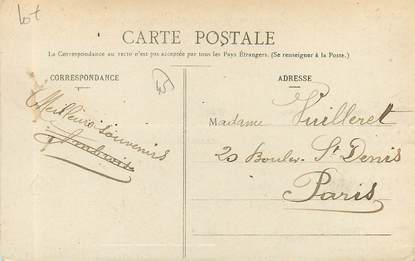 lot
CARTE POSTALE
La Correspondance au recto n'est pas acceptée par tous les Pays Étrangers. (Se renseigner à la Poste.)
CORRESPONDANCE
45
Meilleurs Souvenirs
ADRESSE
Madame Vuilleret
20 Boulev. St Denis
Paris